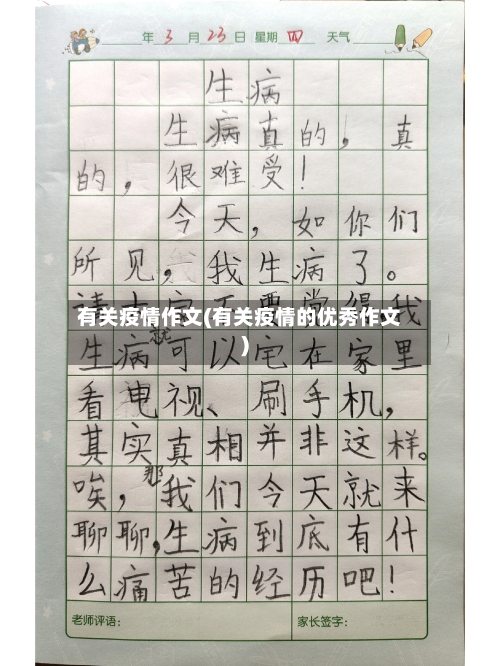 年 3 月 23 日 星期 四 天气
生病
生病真的，真
的，很难受！
今天，如你们
所见，我生病了。
我
有关疫情作文(有关疫情的优秀作文
)
生病就可以宅在家里
看电视、刷手机，
其实真相并非这样。
唉，那我们今天就来
聊聊，生病到底有什
么痛苦的经历吧！
老师评语： 家长签字：